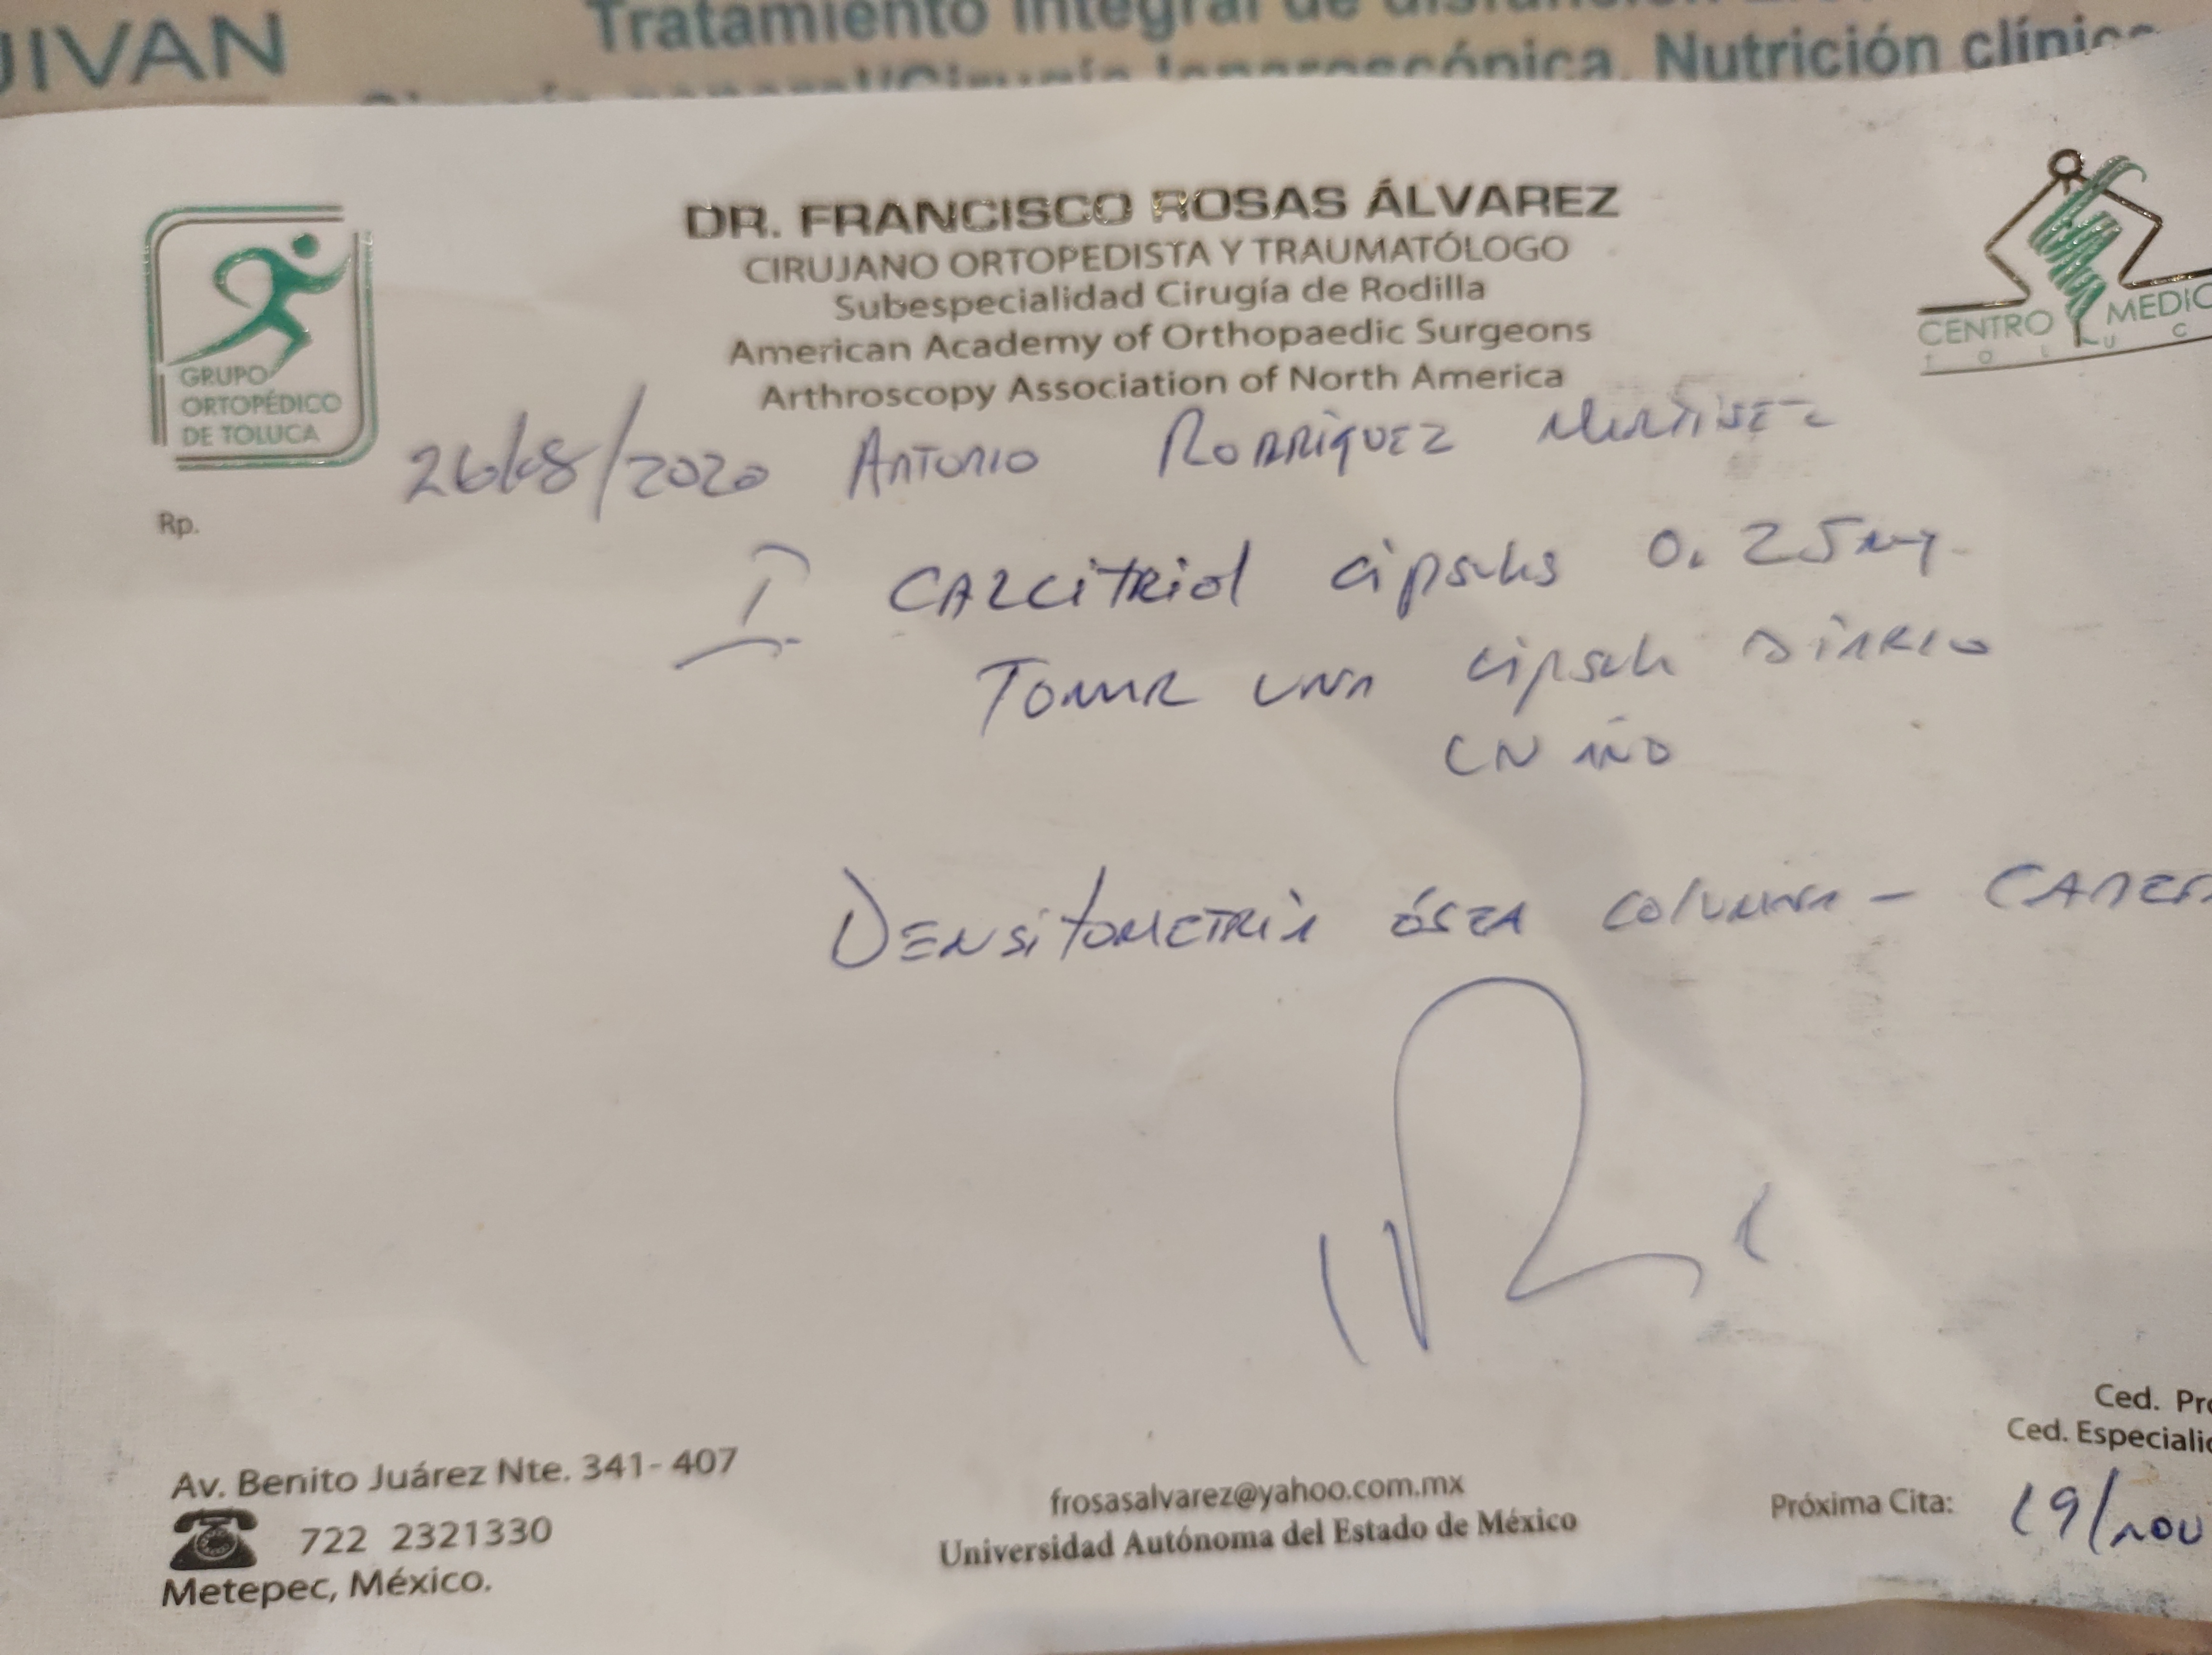 JIVAN
Tratamiento integral de
Nutrición clínica
DR. FRANCISCO ROSAS ÁLVAREZ
CIRUJANO ORTOPEDISTA Y TRAUMATÓLOGO
Subespecialidad Cirugía de Rodilla
American Academy of Orthopaedic Surgeons
Arthroscopy Association of North America
GRUPO
ORTOPÉDICO
DE TOLUCA
CENTRO MEDIC
T O L U C
26/8/2020 ANTONIO RODRÍGUEZ
Rp.
I CALCITRIOL cápsulas 0.25
TOMAR UNA cápsula DIARIO
UN AÑO
DENSITOMETRÍA ÓSEA COLUMNA - CADER
Ced. Pro
Ced. Especialid
Av. Benito Juárez Nte. 341- 407
722 2321330
Metepec, México.
frosasalvarez@yahoo.com.mx
Universidad Autónoma del Estado de México
Próxima Cita: 19/nov